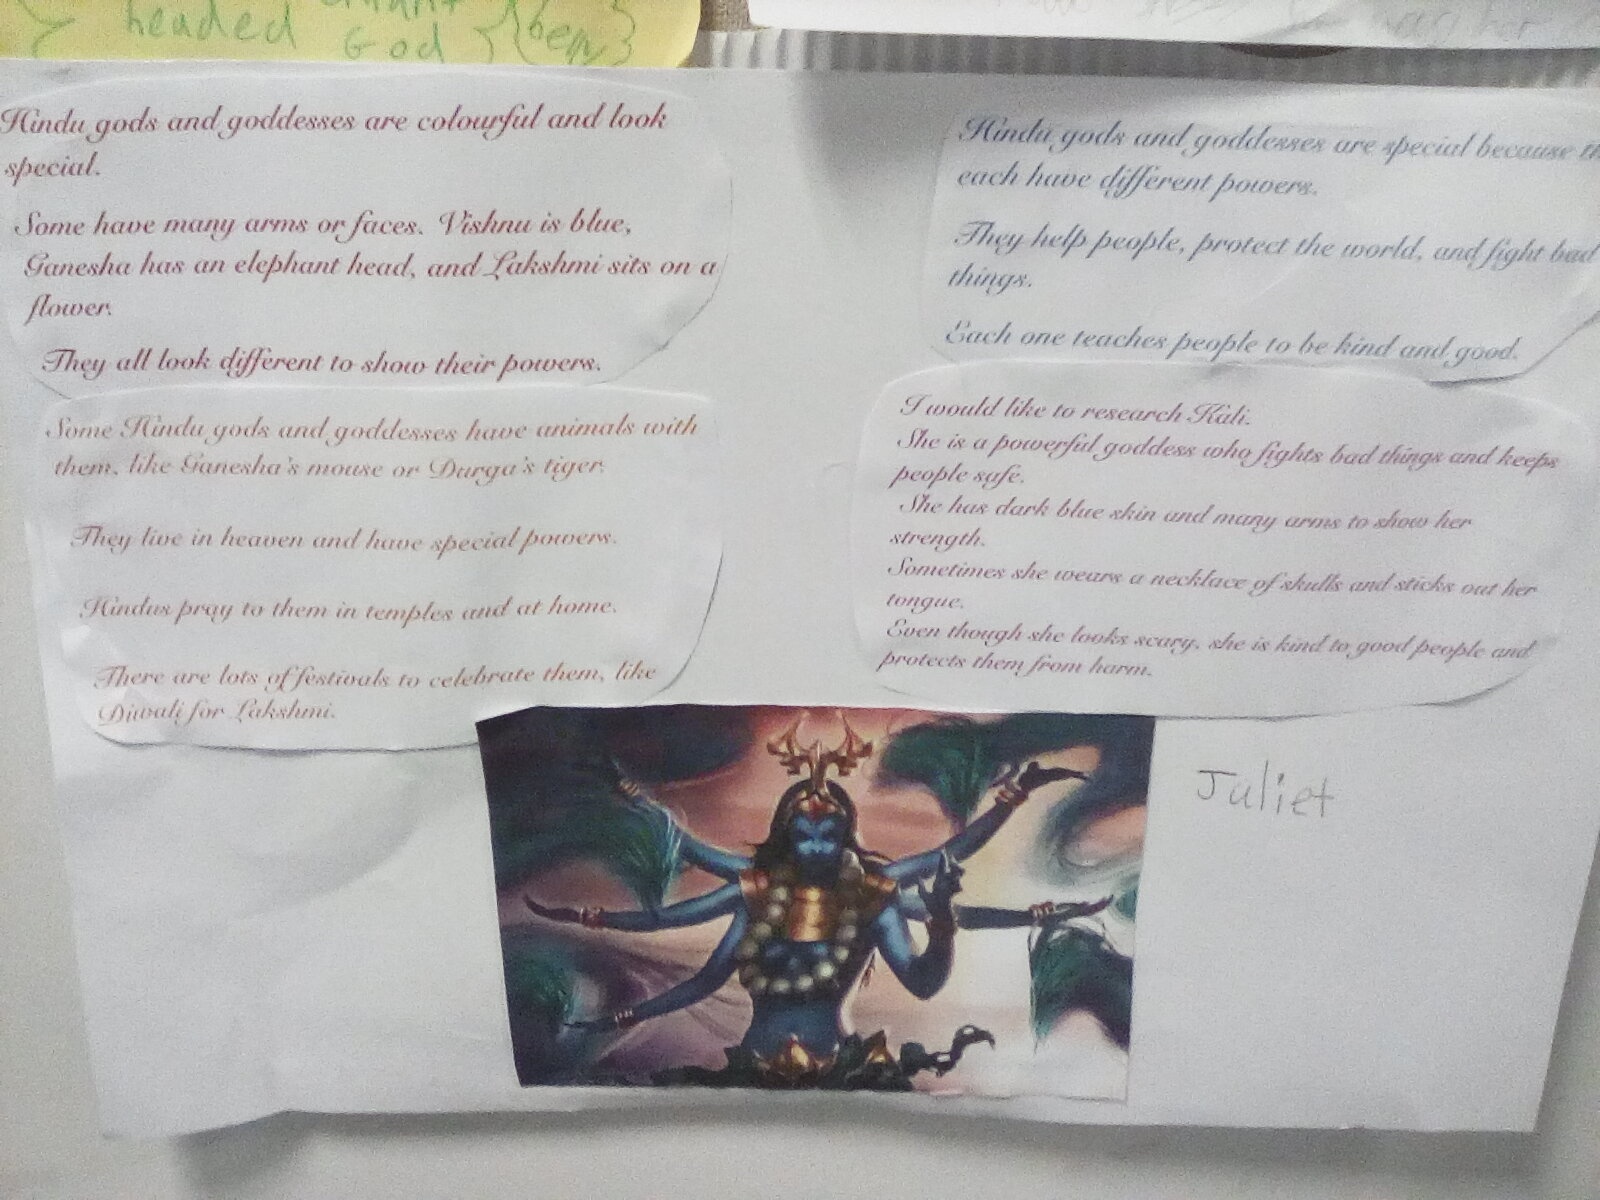 headed God {been}
Hindu gods and goddesses are colourful and look
special.
Some have many arms or faces. Vishnu is blue,
Ganesha has an elephant head, and Lakshmi sits on a
flower.
They all look different to show their powers.
Some Hindu gods and goddesses have animals with
them, like Ganesha's mouse or Durga's tiger.
They live in heaven and have special powers.
Hindus pray to them in temples and at home.
There are lots of festivals to celebrate them, like
Diwali for Lakshmi.
Hindu gods and goddesses are special because
each have different powers.
They help people, protect the world, and fight bad
things.
Each one teaches people to be kind and good.
I would like to research Kali.
She is a powerful goddess who fights bad things and keeps
people safe.
She has dark blue skin and many arms to show her
strength.
Sometimes she wears a necklace of skulls and sticks out her
tongue.
Even though she looks scary, she is kind to good people and
protects them from harm.
Juliet